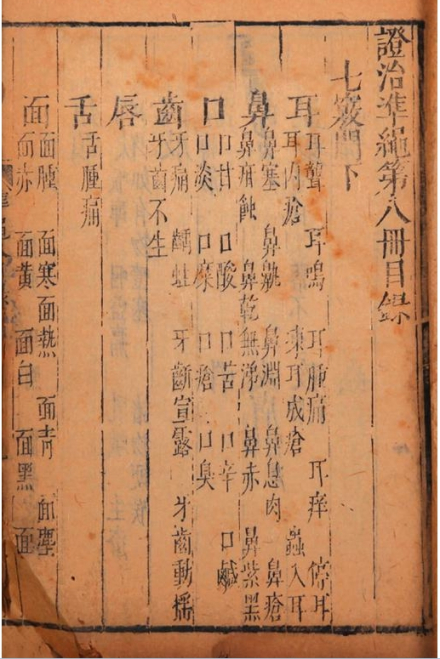 證治準繩第八冊目錄
七竅門下
耳
耳聾 耳鳴 耳腫痛 耳痒 停耳
耳內瘡 凍耳成瘡 蟲入耳
鼻
鼻塞 鼻鼽 鼻淵 鼻息肉 鼻瘡
鼻疳蝕 鼻乾無涕 鼻赤 鼻紫黑
口
口甘 口酸 口苦 口辛 口鹹
口淡 口糜 口瘡 口臭
齒
牙痛 齲蛀 牙齗宣露 牙齒動搖
牙齒不生
唇
舌
舌腫痛
面
面腫 面寒面熱 面青 面塵
面赤 面黃 面白 面黑 面